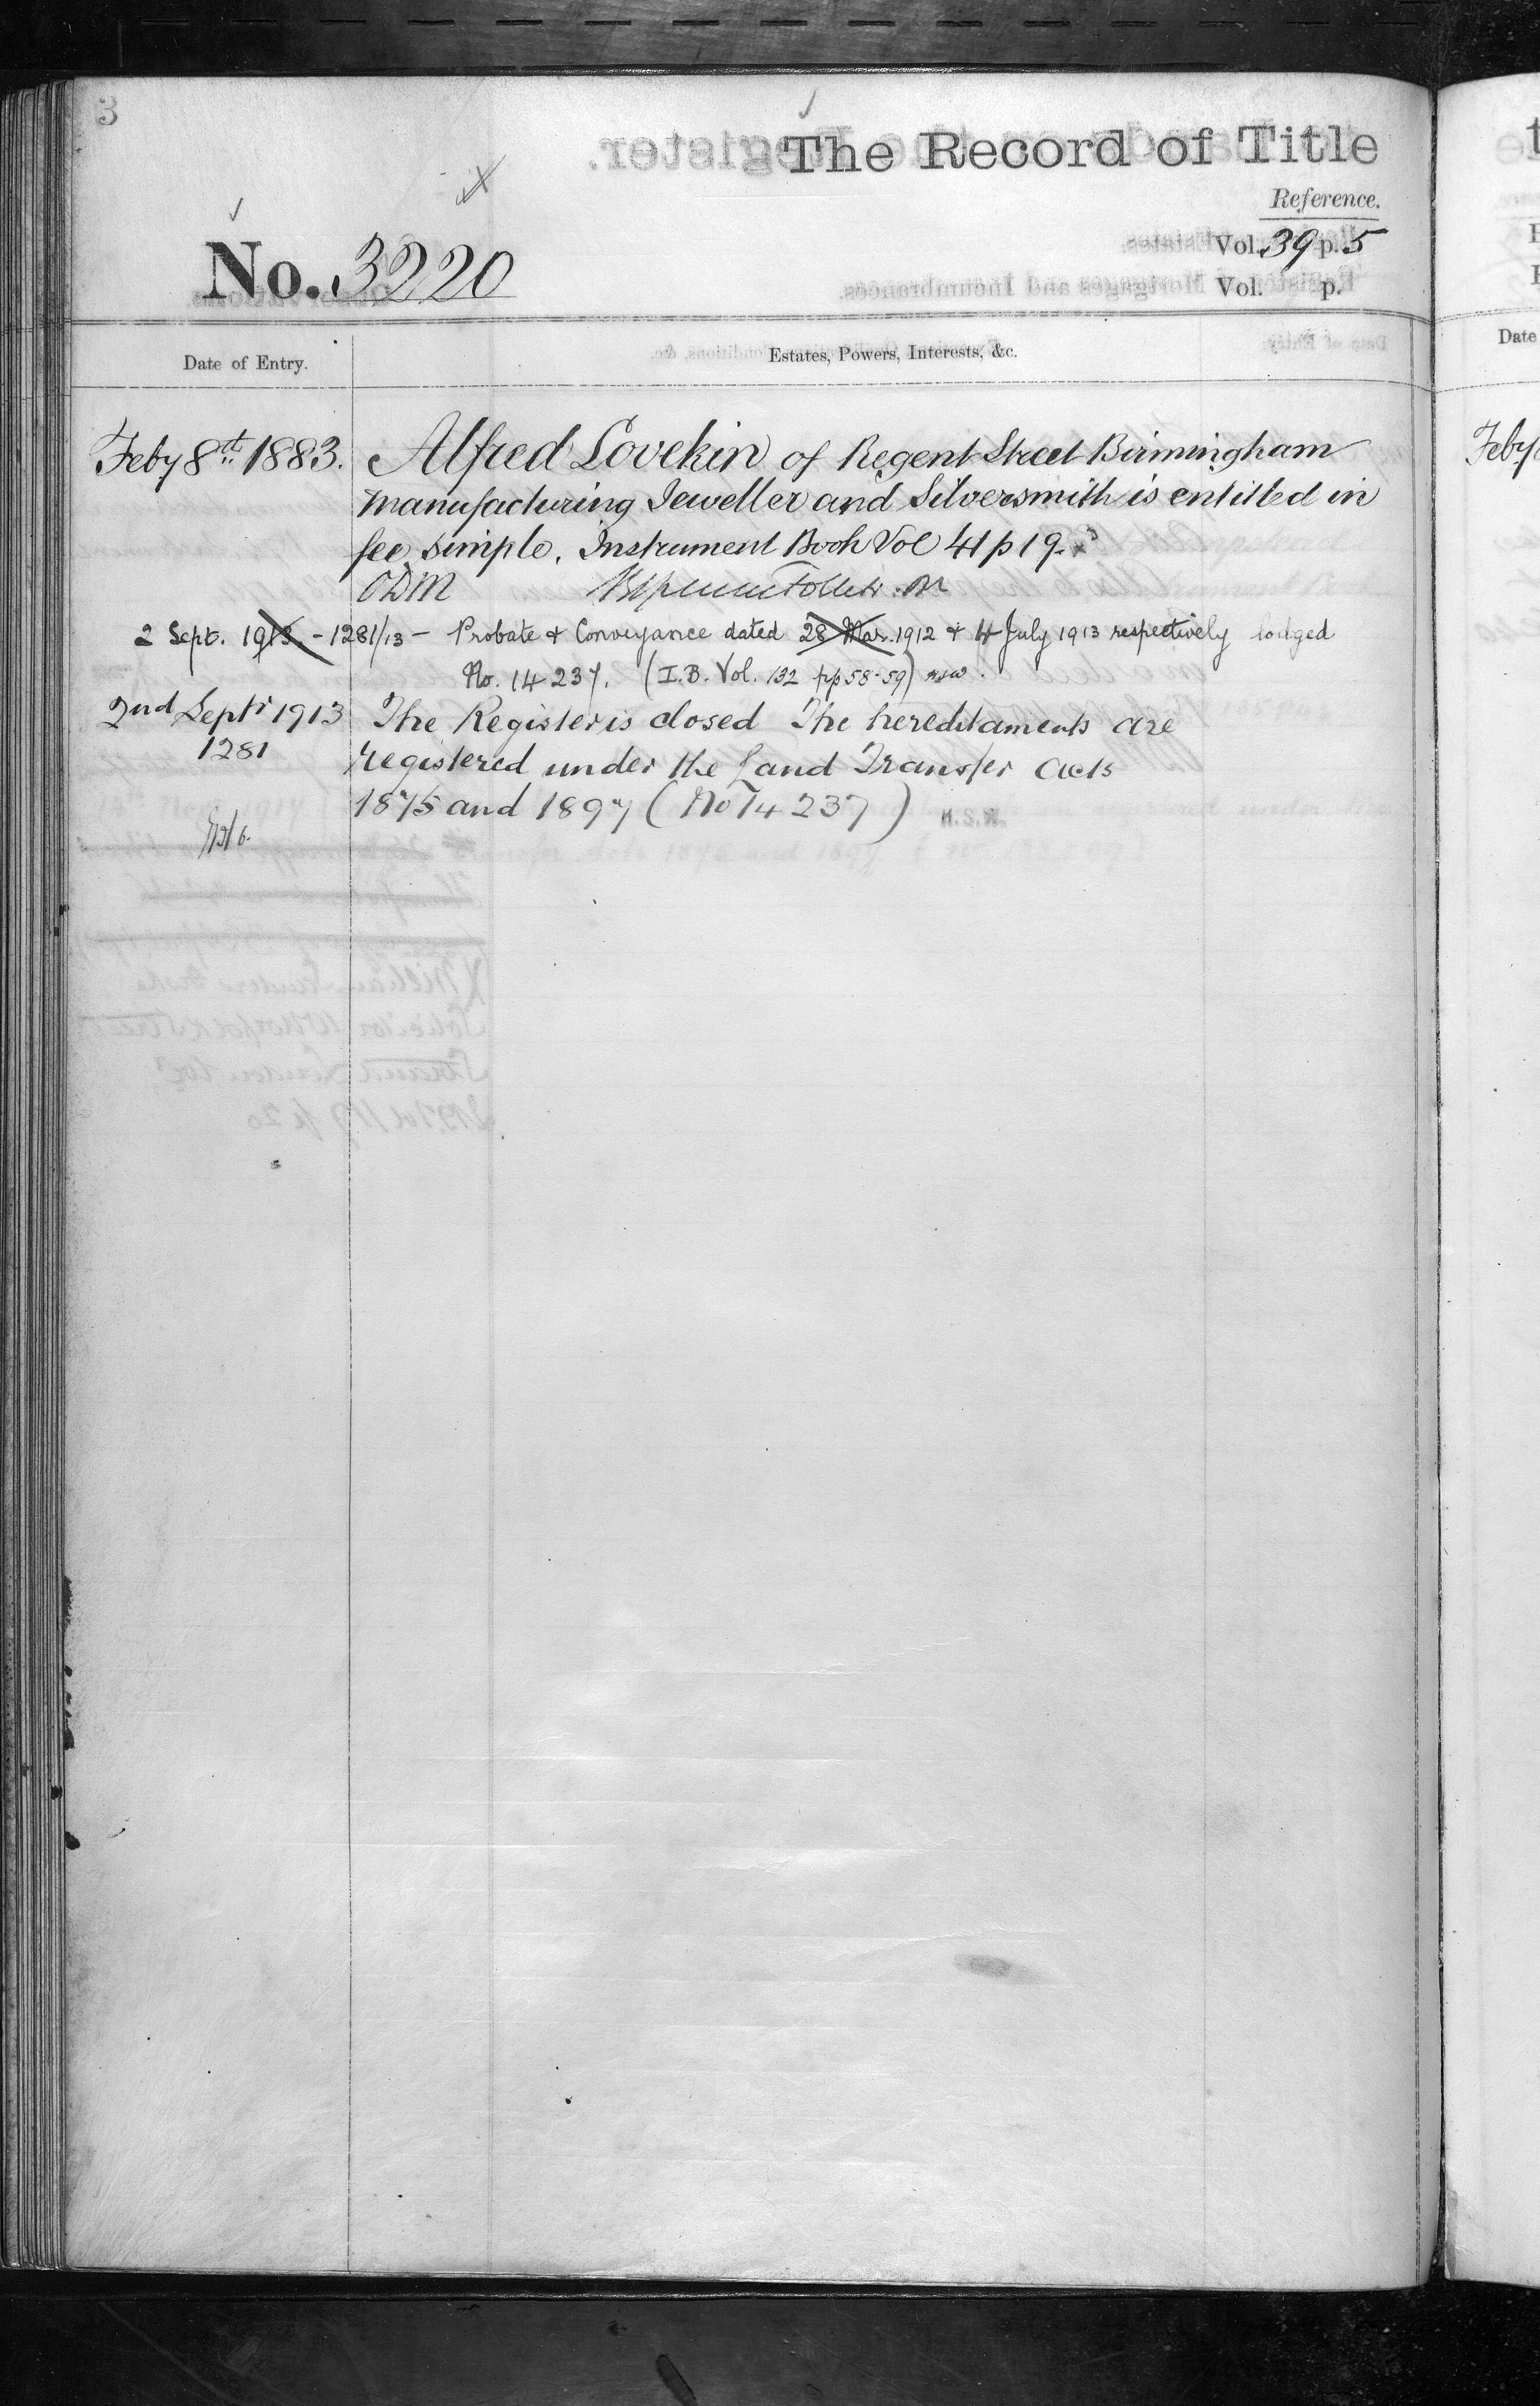 3
The Record of Title
Reference.
No. 3220
Vol. 39 p. 5
Vol. p.
Date of Entry.
Estates, Powers, Interests, &c.
Feby 8th 1883. Alfred Lovekin of Regent Street Birmingham
Manufacturing Jeweller and Silversmith is entitled in
fee simple. Instrument Book Vol 41 p 19.
ODM
2 Sept. 1913 - 1281/13 - Probate & Conveyance dated 28 Mar. 1912 & 4 July 1913 respectively lodged
No. 14237. (I.B. Vol. 132 pp 58-59)
2nd Septr 1913 The Register is closed The hereditaments are
1281 registered under the Land Transfer Acts
1875 and 1897 (No 14237)
H.S.W.
Date
Feby